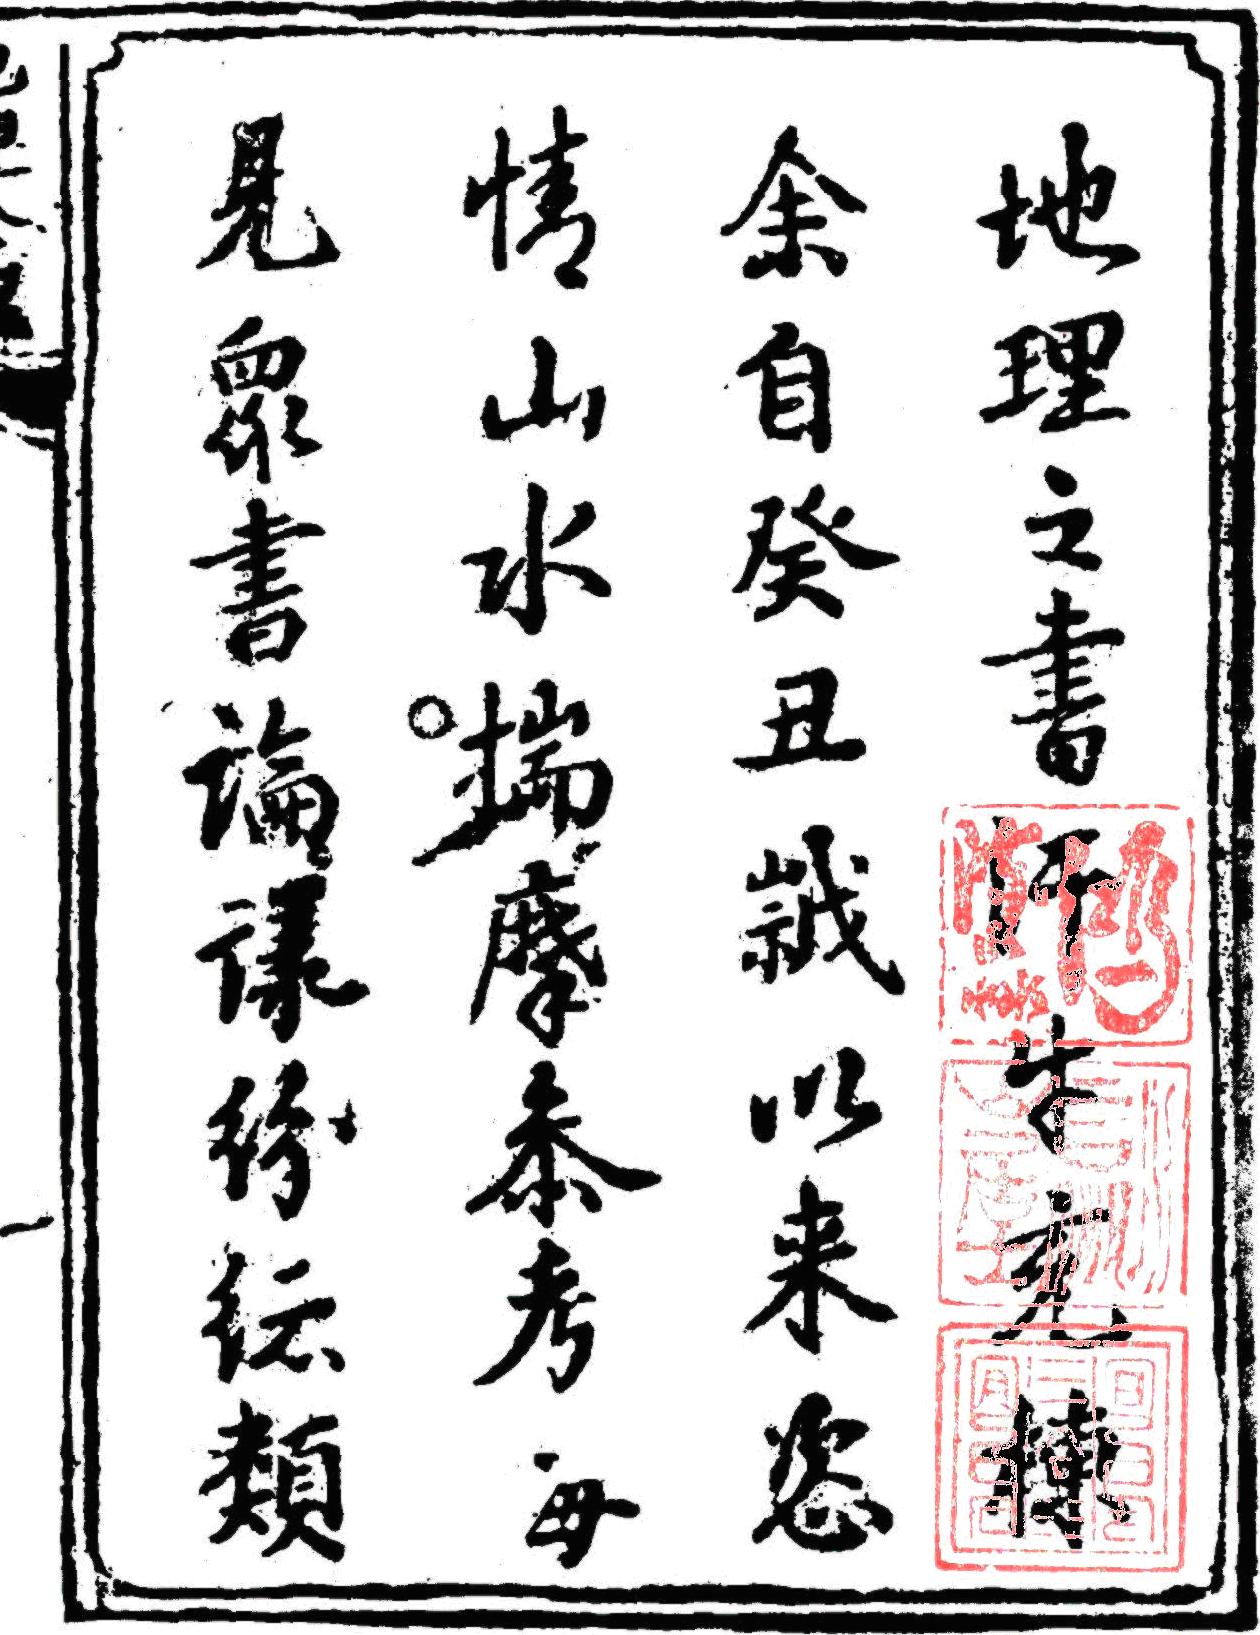 地理之書汗牛充棟
余自癸丑歳以来恣
情山水揣摩叅考毎
見衆書論議紛紜類